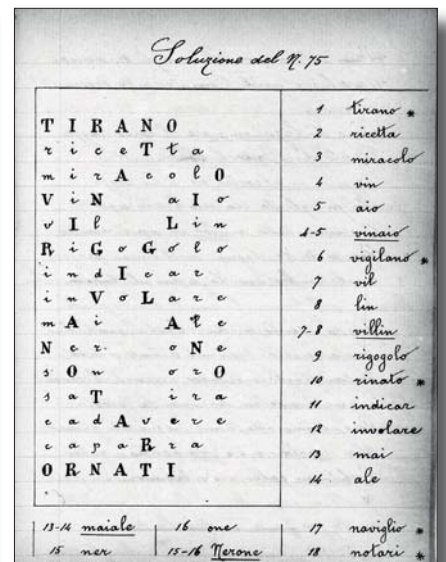 Soluzione del N. 75
T I R A N O
r i c e T t a
m i r A c o l O
V i N a I o
v I l L i n
R i G o G o l o
i n d I c a r
i n V o L a r e
m A i A l e
N e r. o N e
s O n o r O
s a T i r a
c a d A v e r e
c a p a R r a
O R N A T I
1 tirano *
2 ricetta
3 miracolo
4 vin
5 aio
4-5 vinaio
6 vigilano *
7 vil
8 lin
7-8 villin
9 rigogolo
10 rinato *
11 indicar
12 involare
13 mai
14 ale
13-14 maiale 16 one 17 naviglio *
15 ner 15-16 Nerone 18 notari *